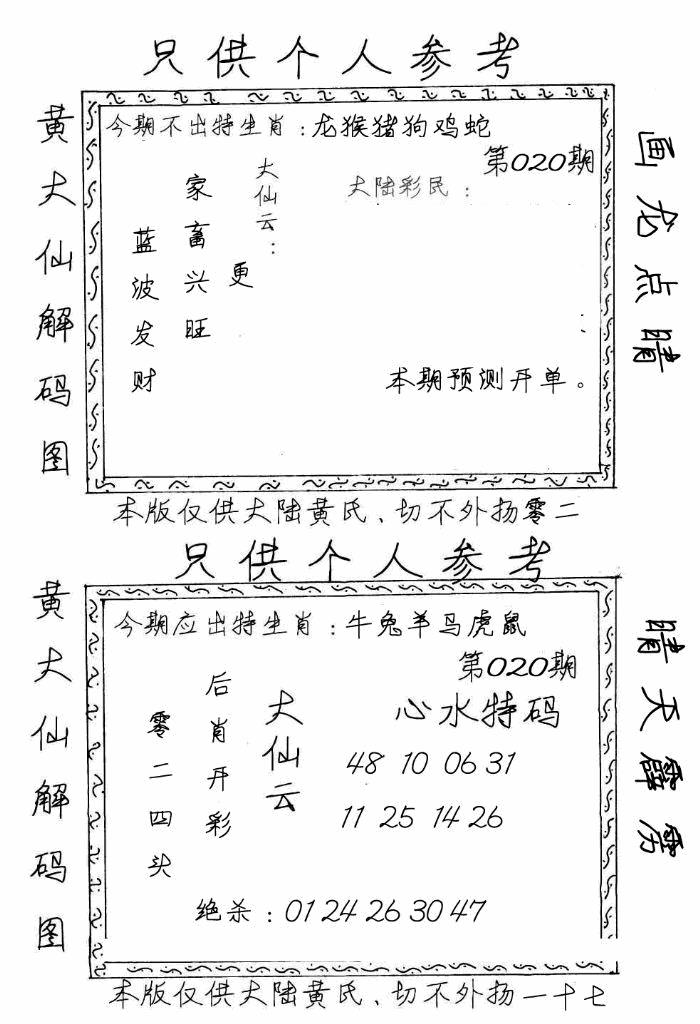 只供个人参考
黄大仙解码图
今期不出特生肖：龙猴猪狗鸡蛇
第020期
大仙云：
家畜兴旺
更
蓝波发财
大陆彩民：
本期预测开单。
画龙点晴
本版仅供大陆黄氏、切不外扬零二
只供个人参考
黄大仙解码图
今期应出特生肖：牛兔羊马虎鼠
第020期
大仙云
后肖开彩
零二四头
心水特码
48 10 06 31
11 25 14 26
绝杀：01 24 26 30 47
晴天霹雳
本版仅供大陆黄氏、切不外扬一十七